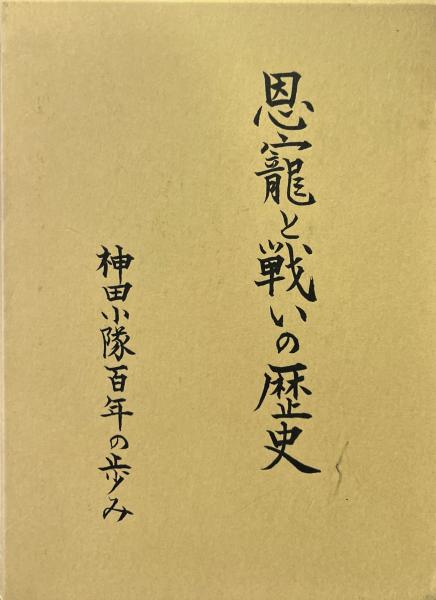 恩寵と戦いの歴史
神田小隊百年の歩み